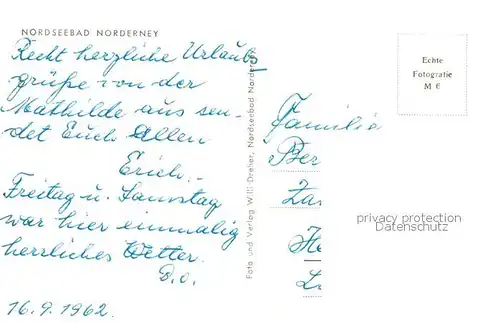 NORDSEEBAD NORDERNEY
Recht herzliche Urlaubs
grüße von der
Mathilde aus sen-
det Euch Allen
Erich.-
Freitag u. Samstag
war hier einmalig
herrliches Wetter.
D.O.
16.9.1962.
Foto und Verlag Willi Dreher, Nordseebad Norderney
Echte
Fotografie
M 6
Familie
Ber
privacy protection
Datenschutz